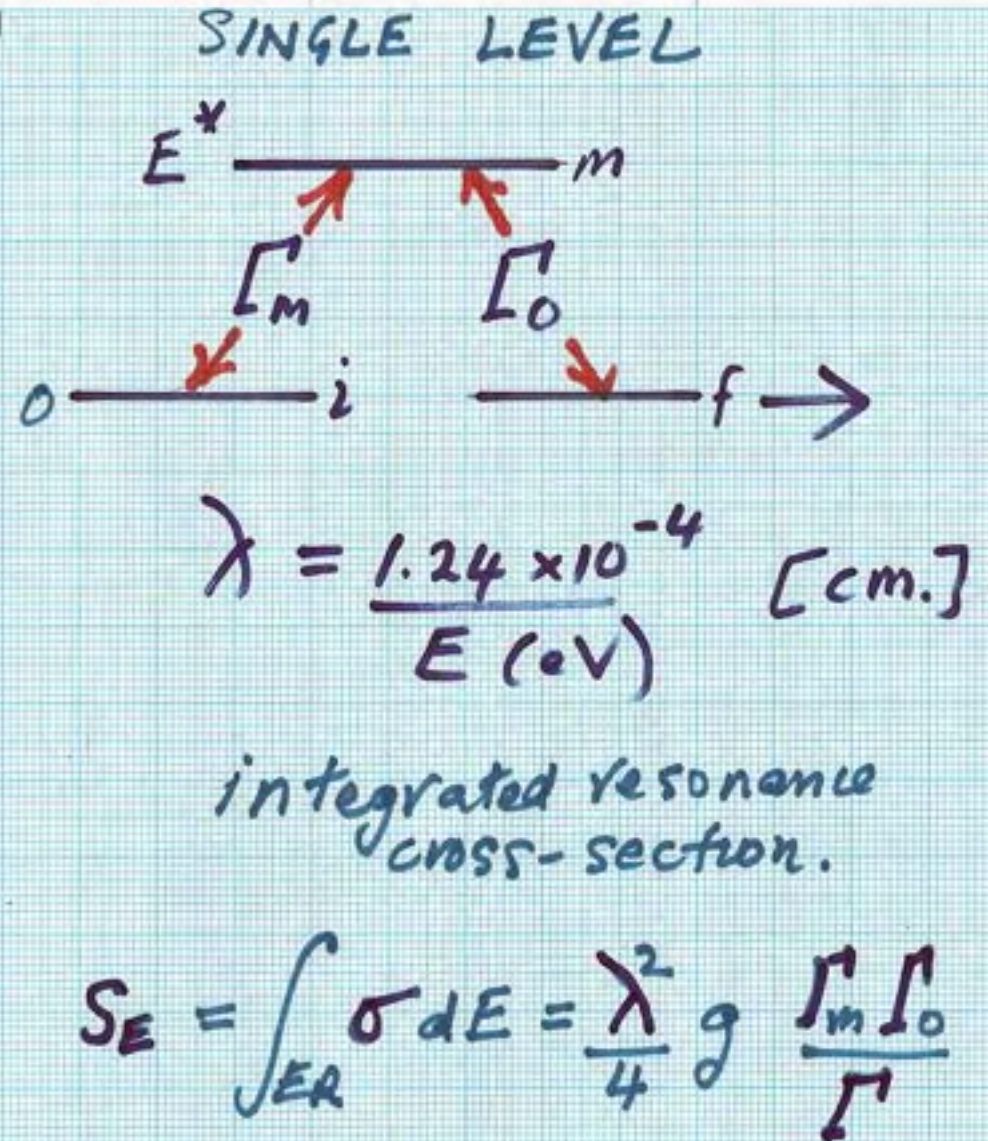 SINGLE LEVEL
E* m
Γm Γ0
0 i f →
λ = 1.24 ×10^-4 / E (eV) [cm.]
integrated resonance
cross-section.
S_E = ∫_ER σ dE = λ²/4 g Γm Γ0 / Γ